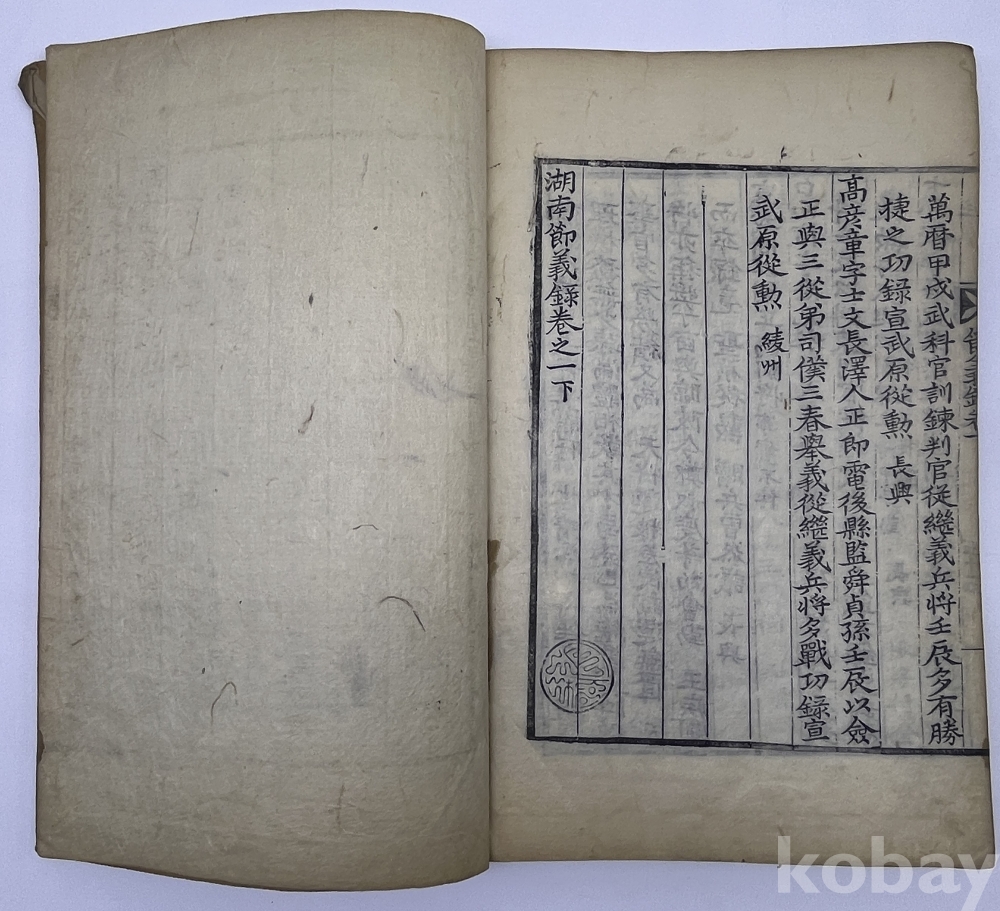 萬曆甲戌武科官訓鍊判官從繼義兵將壬辰多有勝
捷之功錄宣武原從勲 長興
高彦章字士文長澤人正郎電後縣監舜貞孫壬辰以僉
正與三從弟司僕三春舉義從繼義兵將多戰功錄宣
武原從勲 綾州
湖南節義錄卷之一下
kobay